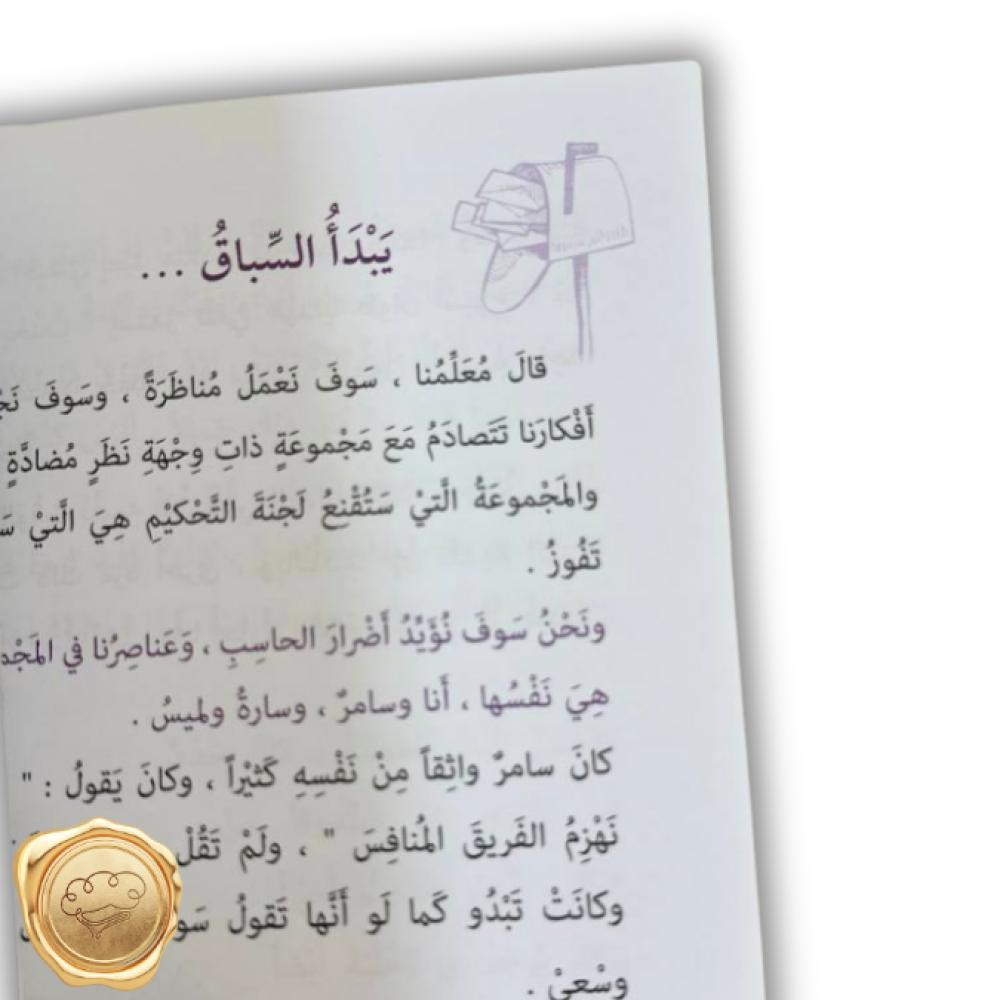 يَبْدَأُ السِّباقُ ...
قالَ مُعَلِّمُنا ، سَوفَ نَعْمَلُ مُناظَرَةً ، وسَوفَ
أَفْكارَنا تَتَصادَمُ مَعَ مَجْموعَةٍ ذاتِ وِجْهَةِ نَظَرٍ مُضادَّةٍ
والمَجْموعَةُ الَّتيْ سَتُقْنِعُ لَجْنَةَ التَّحْكيْمِ هِيَ الَّتيْ
تَفُوزُ .
ونَحْنُ سَوفَ نُؤَيِّدُ أَضْرارَ الحاسِبِ ، وَعَناصِرُنا في
هِيَ نَفْسُها ، أَنا وسامرٌ ، وسارةُ ولميسُ .
كانَ سامرٌ واثِقاً مِنْ نَفْسِهِ كَثيْراً ، وكانَ يَقولُ : "
نَهْزِمُ الفَريقَ المُنافِسَ " ، ولَمْ تَقُلْ
وكانَتْ تَبْدُو كَما لَو أَنَّها تَقولُ
وسْعيْ .